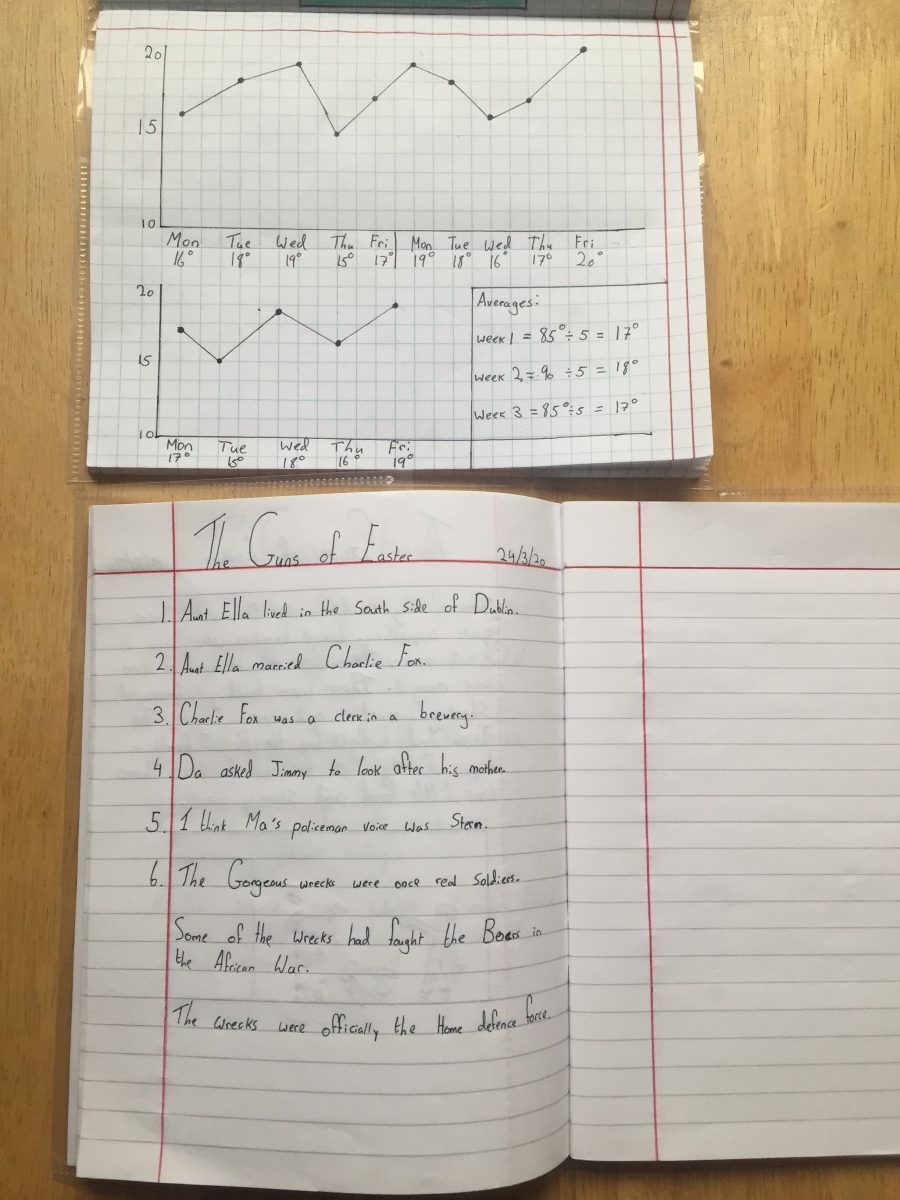 20
15
10
Mon Tue Wed Thu Fri Mon Tue Wed Thu Fri
16° 18° 19° 15° 17° 19° 18° 16° 17° 20°
20
15
10
Mon Tue Wed Thu Fri
17° 15° 18° 16° 19°
Averages:
week 1 = 85° ÷ 5 = 17°
week 2 = 90 ÷ 5 = 18°
week 3 = 85° ÷ 5 = 17°
The Guns of Easter 24/3/20
1. Aunt Ella lived in the South side of Dublin.
2. Aunt Ella married Charlie Fox.
3. Charlie Fox was a clerk in a brewery.
4 Da asked Jimmy to look after his mother.
5. I think Ma's policeman voice was Stern.
6. The Gorgeous wrecks were once real Soldiers.
Some of the wrecks had fought the Boers in
the African War.
The wrecks were officially the Home defence force.